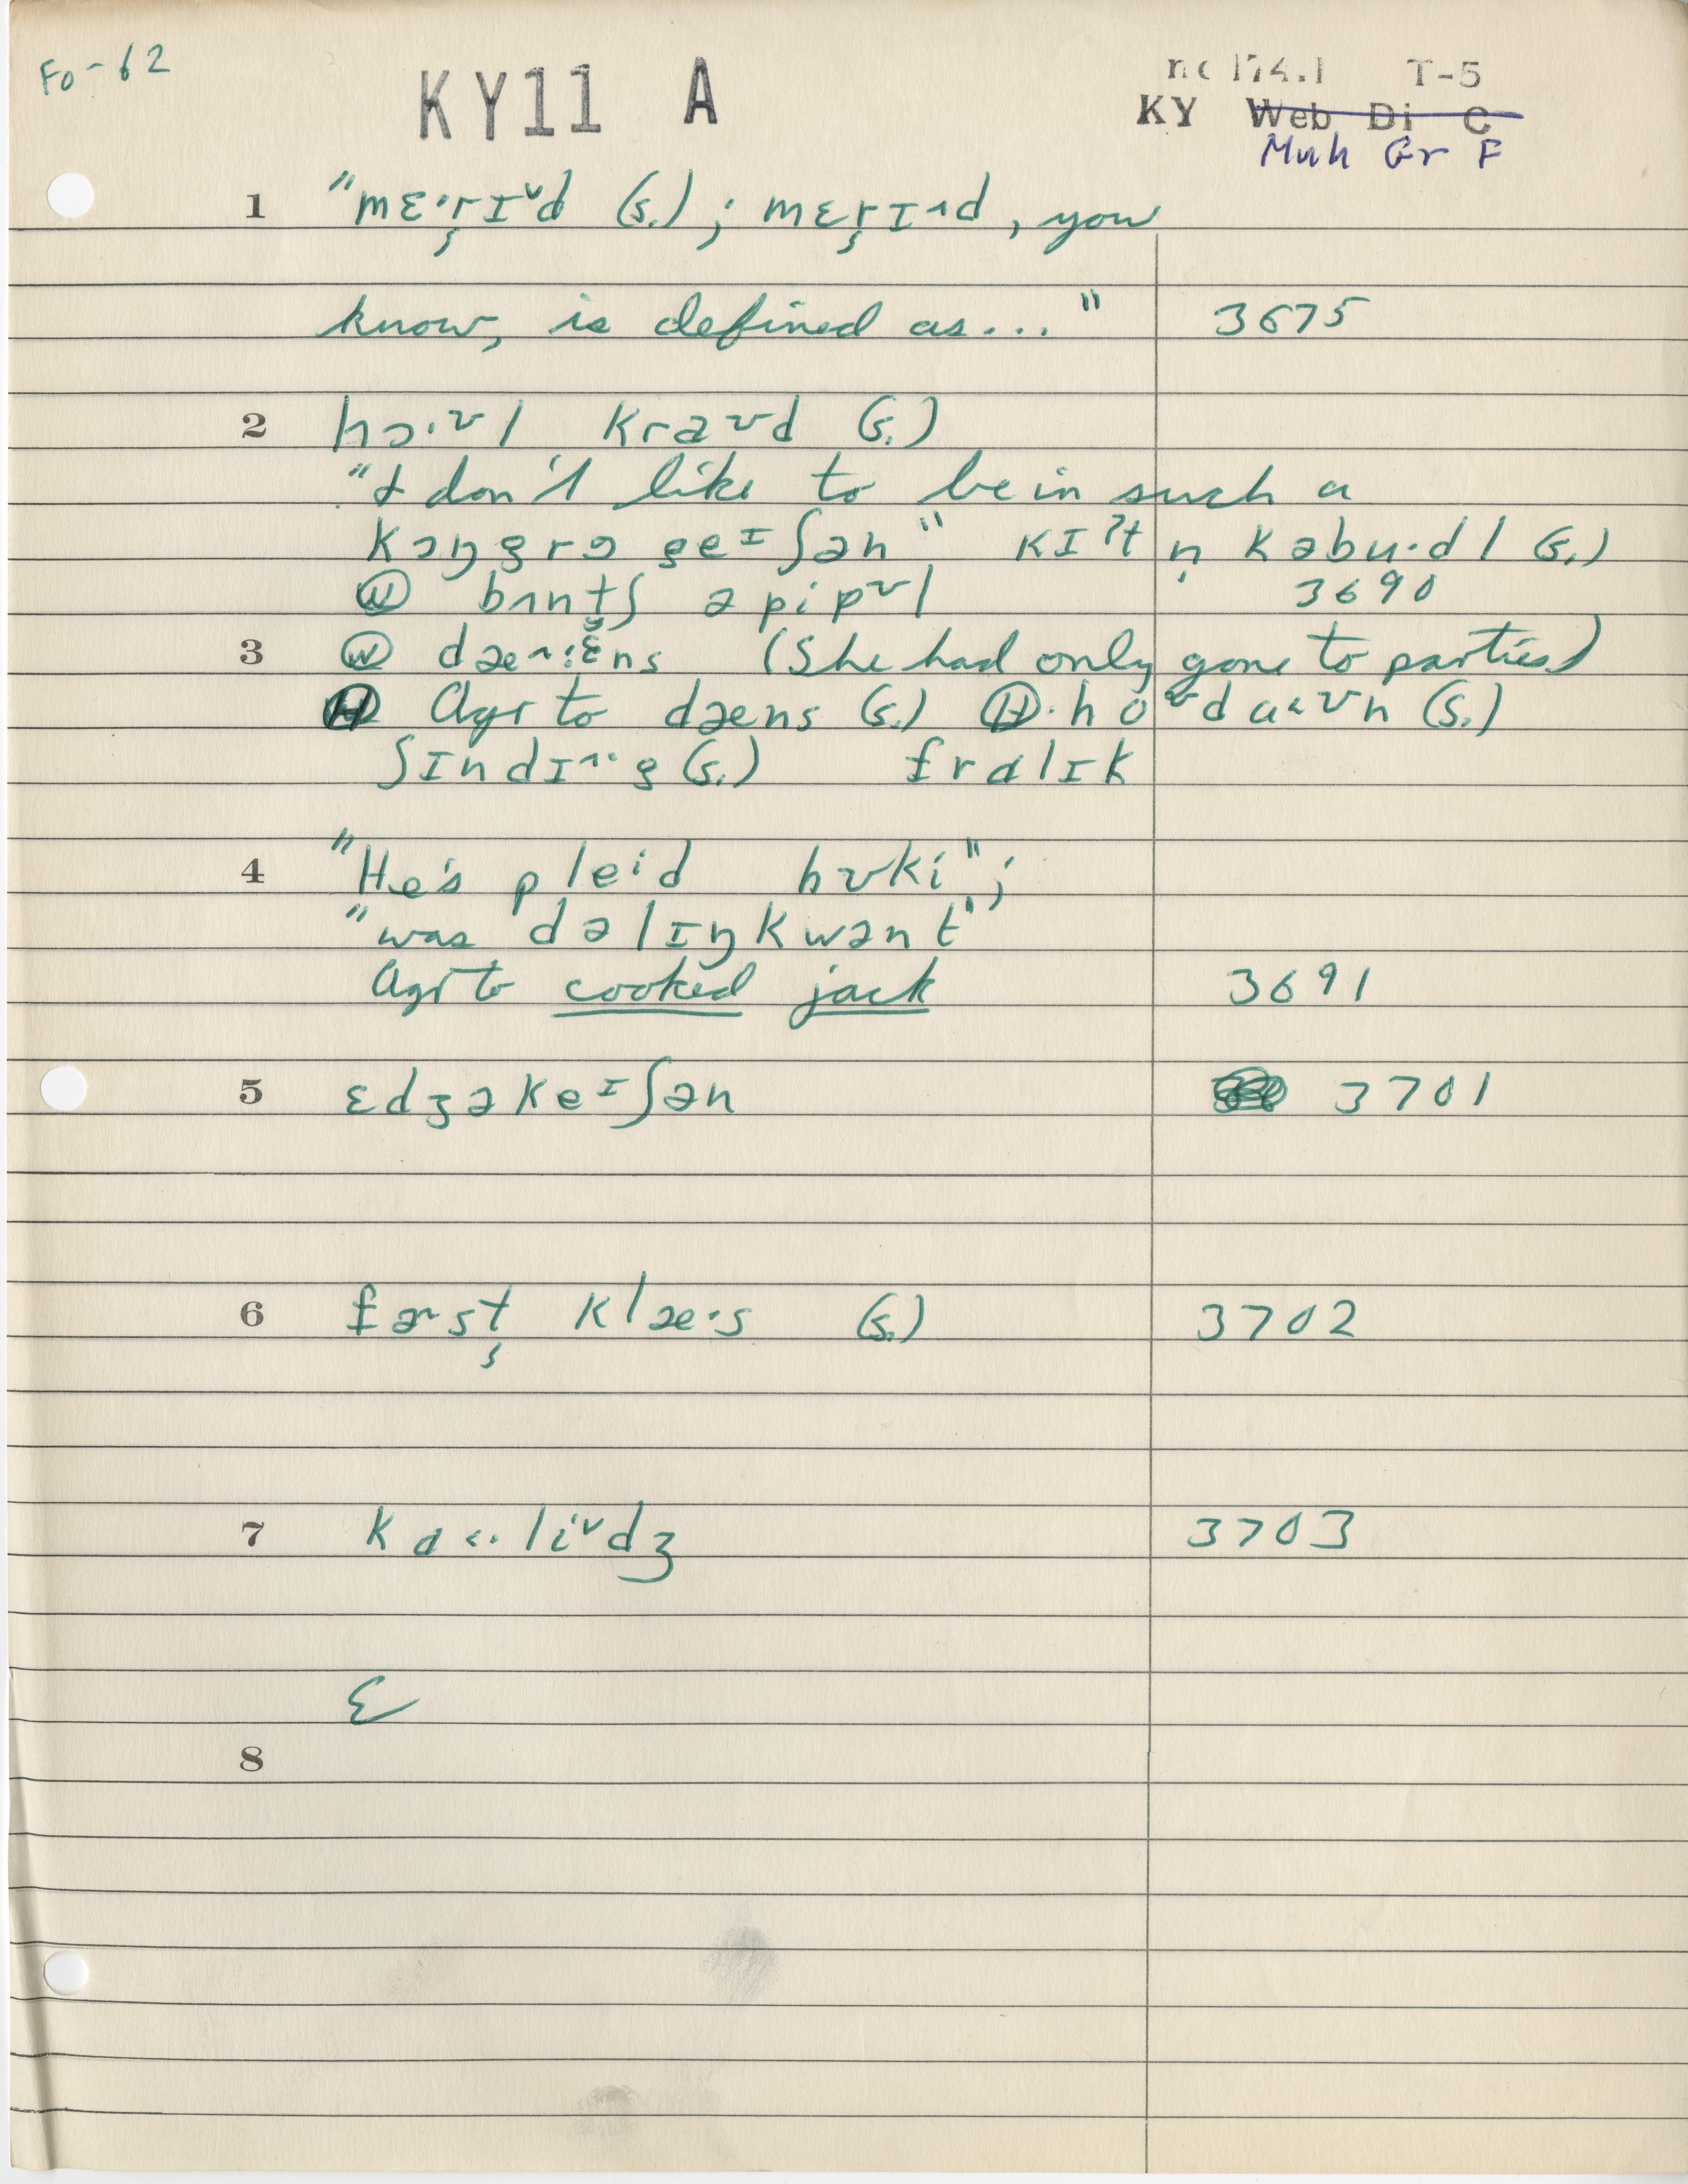 Fo-62
KY11 A
T-5
KY Web Di C
Muh Gr F
1 "mɛ·rɪᵛd (s.) ; mɛrɪ^d , you
know, is defined as..." 3675
2 hɔ·ʊl kraʊd (s.)
"I don't like to be in such a
kɔŋgrəgeᶦʃən" kɪˀt n̩ kəbu·dl (s.)
Ⓦ bʌntʃ ə pipᶷl 3690
3 Ⓦ (She had only gone to parties)
Ⓗ Agr to dæns (s.) Ⓗ (s.)
ʃɪndɪ^·g (s.) fralɪk
4 "He's pleid hʊki" ;
"was dəlɪŋkwənt"
Agr to cooked jack 3691
5 ɛdʒəkeᶦʃən 3701
6 fɚst klæ·s (s.) 3702
7 kɑ<·liᵛdʒ 3703
ɛ
8